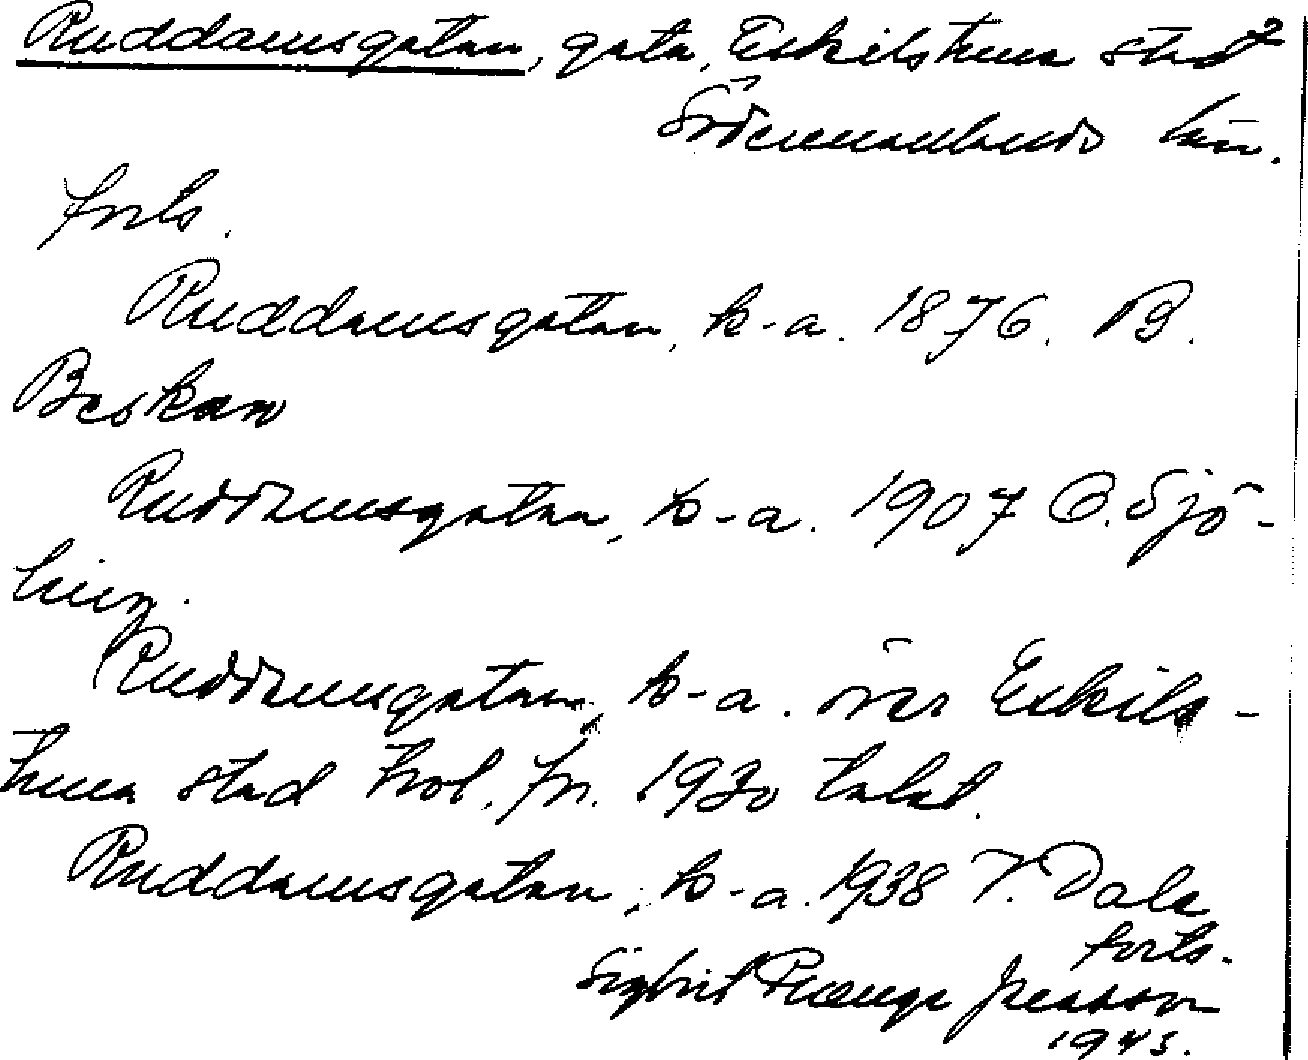 Ruddamsgatan, gata, Eskilstuna stad
Södermanlands län.
forts.
Ruddamsgatan, k-a. 1876. B.
Beskow
Ruddamsgatan, k-a. 1907 C. Sjö-
ling.
Ruddamsgatan, k-a. över Eskils-
tuna stad trol. fr. 1930 talet.
Ruddamsgatan, k-a. 1938 T. Dala
forts.
Sigbrit Jeansson
1943.